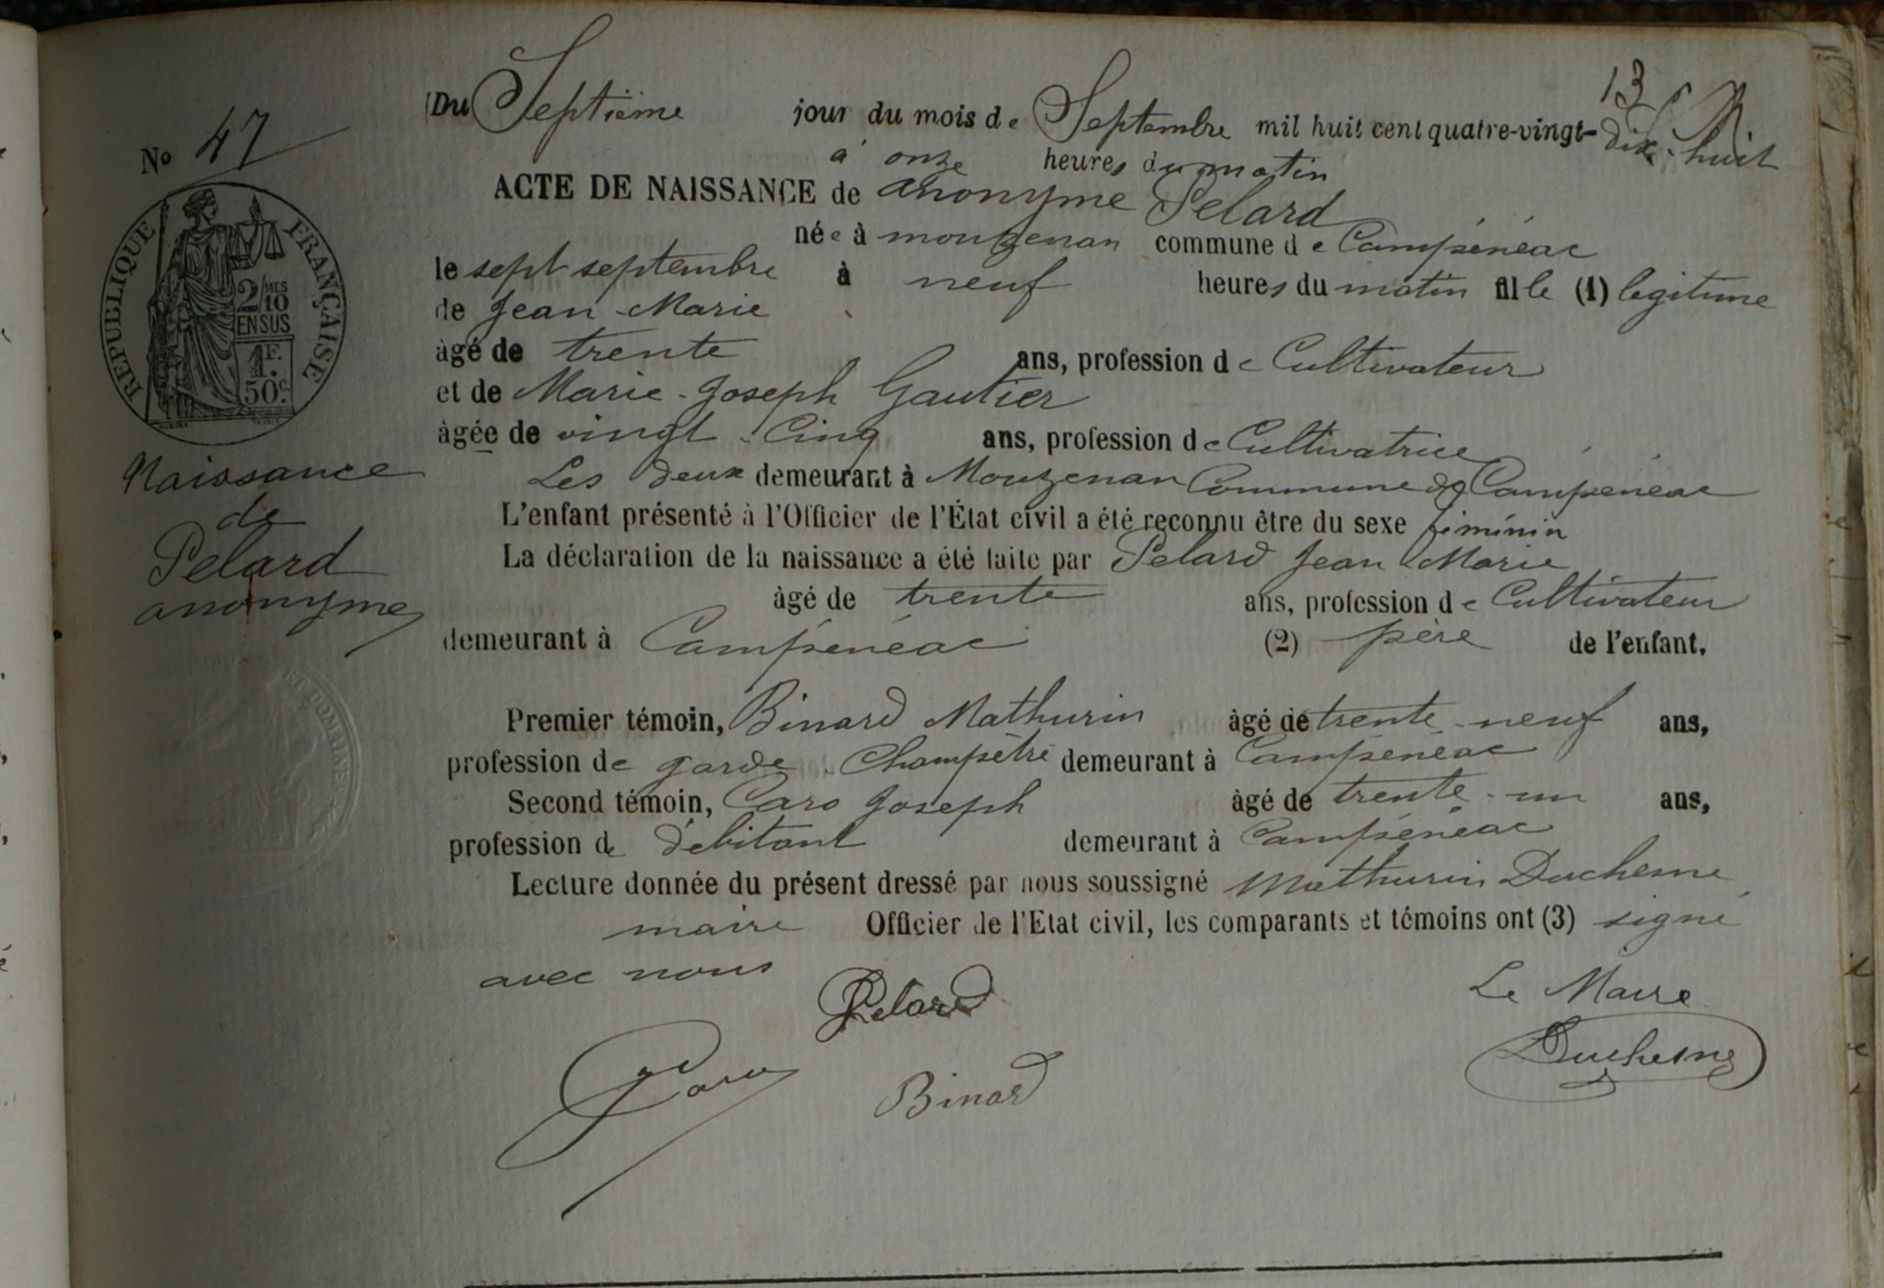 13
Du Septième jour du mois de Septembre mil huit cent quatre-vingt-dix-huit
à onze heures du matin
ACTE DE NAISSANCE de anonyme Pelard
née à mouzenan commune de Campénéac
le sept septembre à neuf heures du matin fille (1) legitime
de Jean-Marie
âgé de trente ans, profession de Cultivateur
et de Marie-Joseph Gautier
âgée de vingt-Cinq ans, profession de Cultivatrice
Les deux demeurant à Mouzenan Commune de Campénéac
L'enfant présenté à l'Officier de l'État civil a été reconnu être du sexe féminin
La déclaration de la naissance a été faite par Pelard Jean Marie
âgé de trente ans, profession de Cultivateur
demeurant à Campénéac (2) père de l'enfant.
Premier témoin, Binard Mathurin âgé de trente-neuf ans,
profession de garde-Champètre demeurant à Campénéac
Second témoin, Caro Joseph âgé de trente-un ans,
profession de débitant demeurant à Campénéac
Lecture donnée du présent dressé par nous soussigné Mathurin Duchesne
maire Officier de l'Etat civil, les comparants et témoins ont (3) signé
avec nous
Pelard
Le Maire
Duchesne
Caro
Binard
No 47
RÉPUBLIQUE FRANÇAISE
2/10MES
EN SUS
1F.
50c.
Naissance
de
Pelard
anonyme